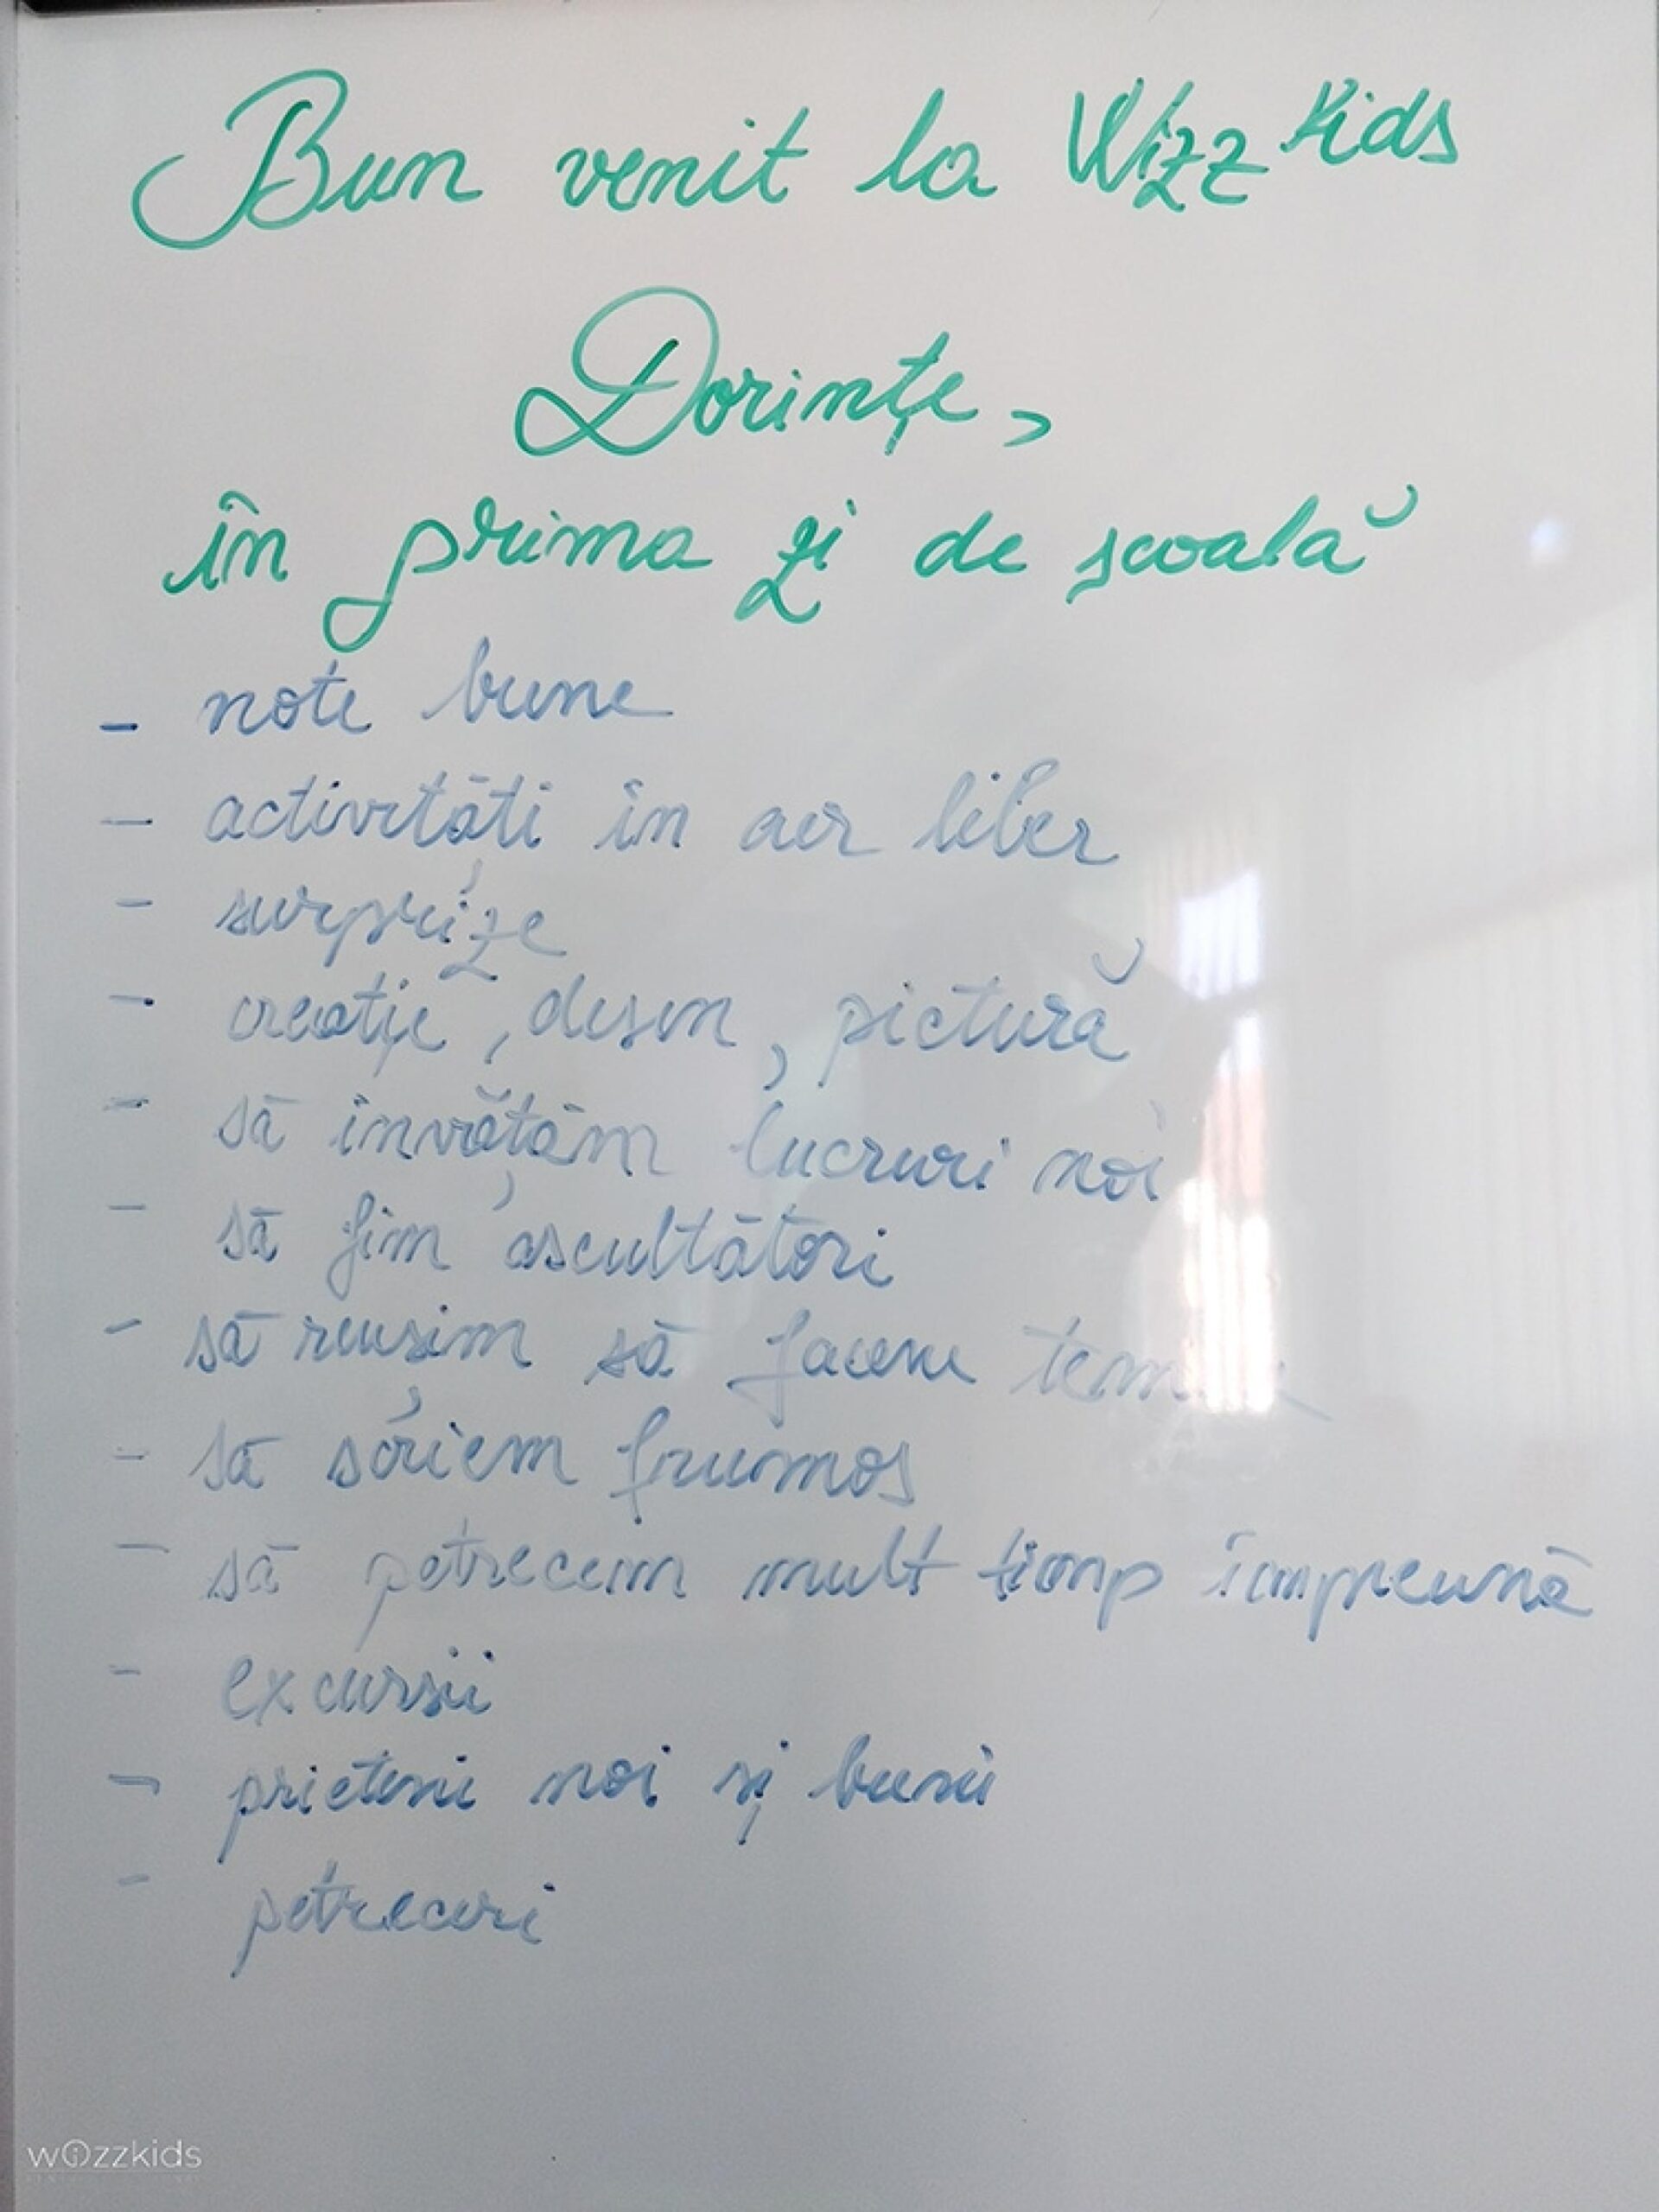 Bun venit la Wizz Kids
Dorințe,
în prima zi de școală
- note bune
- activități în aer liber
- surprize
- creație, desen, pictură
- să învățăm lucruri noi
- să fim ascultători
- să reușim să facem
- să scriem frumos
- să petrecem mult timp împreună
- excursii
- prieteni noi și buni
- petreceri
wizzkids